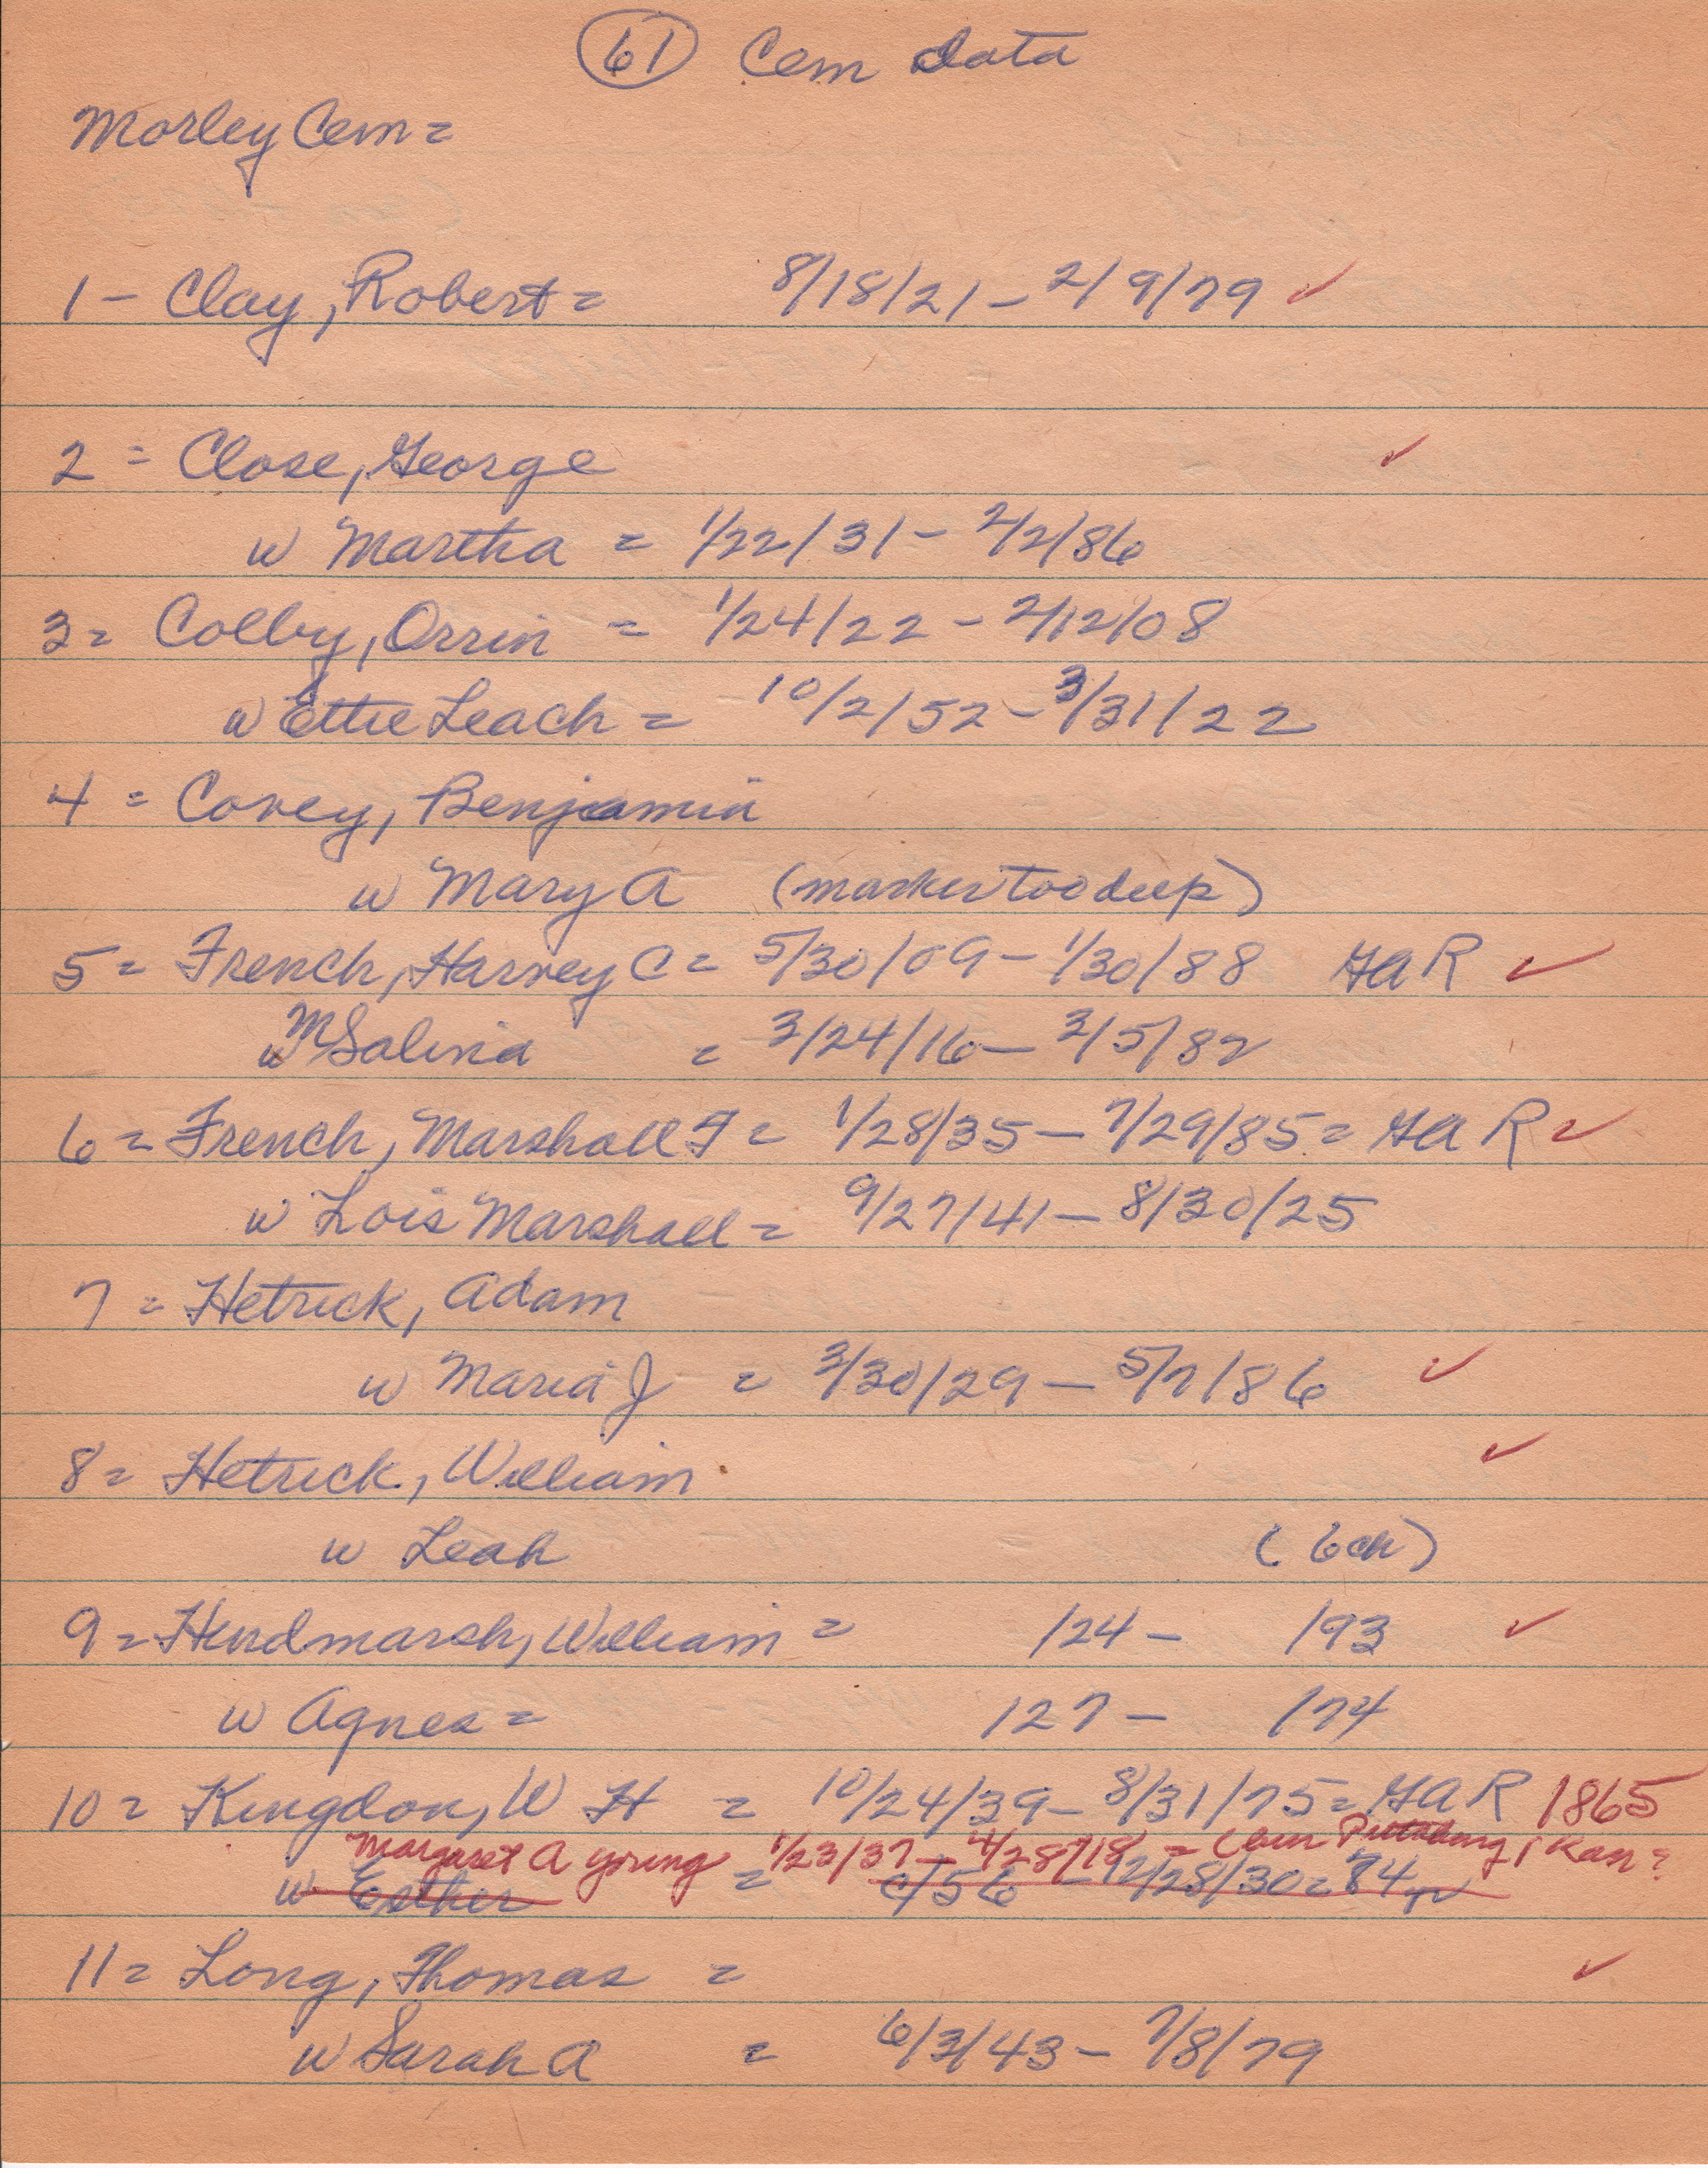 61 Cem Data
Morley Cem =
1 - Clay, Robert = 8/18/21 - 2/9/79 ✓
2 = Close, George ✓
w Martha = 1/22/31 - 2/2/86
3 = Colby, Orrin = 1/24/22 - 2/12/08
w Ettie Leach = 10/2/52 - 3/31/22
4 = Covey, Benjamin
w Mary A (marker too deep)
5 = French, Harvey C = 5/30/09 - 1/30/88 GAR ✓
w M Salina = 3/24/16 - 2/5/82
6 = French, Marshall F = 1/28/35 - 7/29/85 = GAR ✓
w Lois Marshall = 9/27/41 - 8/30/25
7 = Hetrick, Adam
w Maria J = 3/30/29 - 5/7/86 ✓
8 = Hetrick, William ✓
w Leah (6 ch)
9 = Hindmarsh, William = /24 - /93 ✓
w Agnes = /27 - /74
10 = Kingdon, W H = 10/24/39 - 8/31/75 = GAR 1865
Margaret A Young 1/23/37 - 4/28/18 = (bur Pittsburg, Kan?
w Esther = c/56 - 12/28/30 = 74
11 = Long, Thomas = ✓
w Sarah A = 6/3/43 - 7/8/79